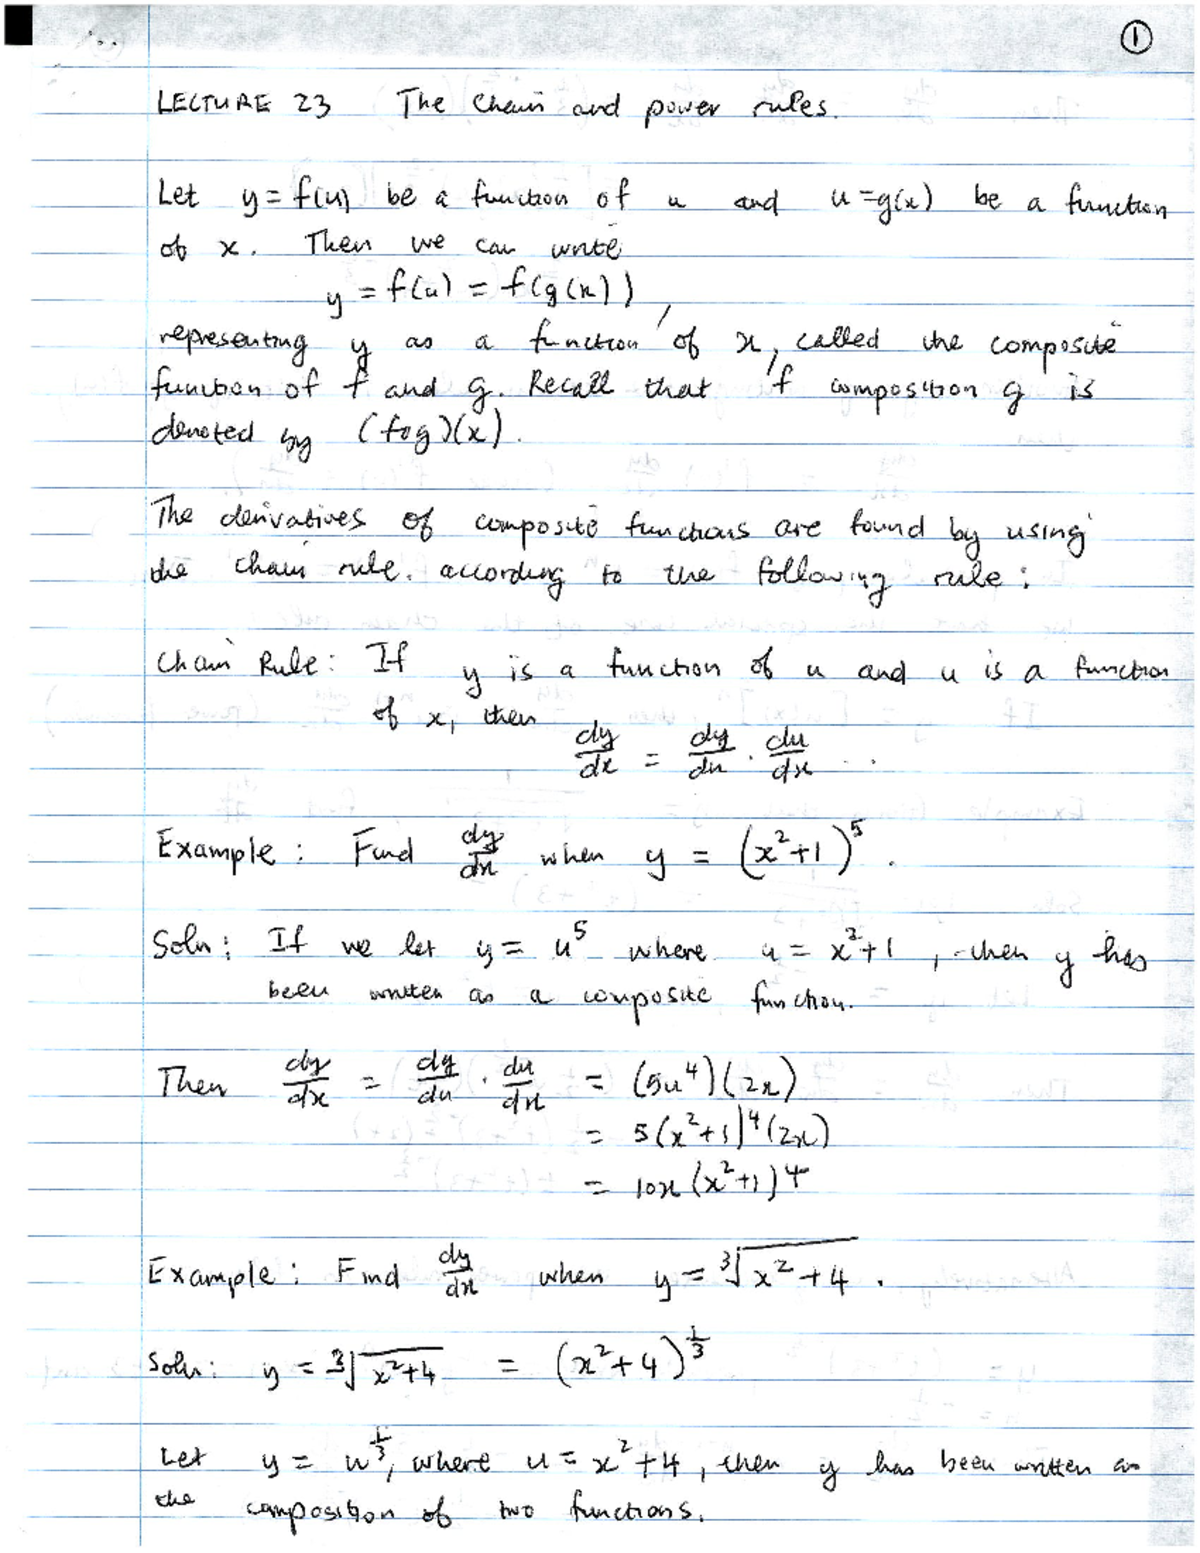 ①
LECTURE 23 The Chain and power rules.
Let y = f(u) be a function of u and u = g(x) be a function
of x. Then we can write
y = f(u) = f(g(x)),
representing y as a function of x, called the composite
function of f and g. Recall that f composition g is
denoted by (fog)(x).
The derivatives of composite functions are found by using
the chain rule. according to the following rule:
Chain Rule: If y is a function of u and u is a function
of x, then
dy/dx = dy/du · du/dx .
Example: Find dy/dx when y = (x²+1)⁵.
Soln: If we let y = u⁵ where u = x²+1, then y has
been written as a composite function.
Then dy/dx = dy/du · du/dx = (5u⁴)(2x)
= 5(x²+1)⁴(2x)
= 10x(x²+1)⁴
Example: Find dy/dx when y = ∛(x²+4).
Soln: y = ∛(x²+4) = (x²+4)^(1/3)
Let y = u^(1/3), where u = x²+4, then y has been written as
the composition of two functions.